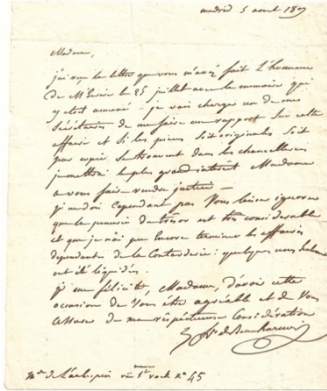 madrid 5 aout
Madame,
j'ai reçu la lettre que vous m'avez fait l'honneur
de M'écrire le 25 juillet avec le memoire qui
y était annexé je vais charger un de mes
Sécrétaires de me faire un rapport sur cette
affaire et Si les pièces Soit originales Soit
par copie Se trouvent dans les chancelleries
je mettrai le plus grand interêt Madame
a vous faire rendre justice
je ne dois Cependant pas Vous laisser ignorer
que la penurie du trésor est très considerable
et que je n'ai pu Encore terminer les affaires
dependantes de la : quelques unes Seulement
ont été liquidées.
je me felicite, Madame, d'avoir cette
occasion de Vous être agréable et de Vous
assurer de ma respectueuse Considération
de Beauharnais
n° 45